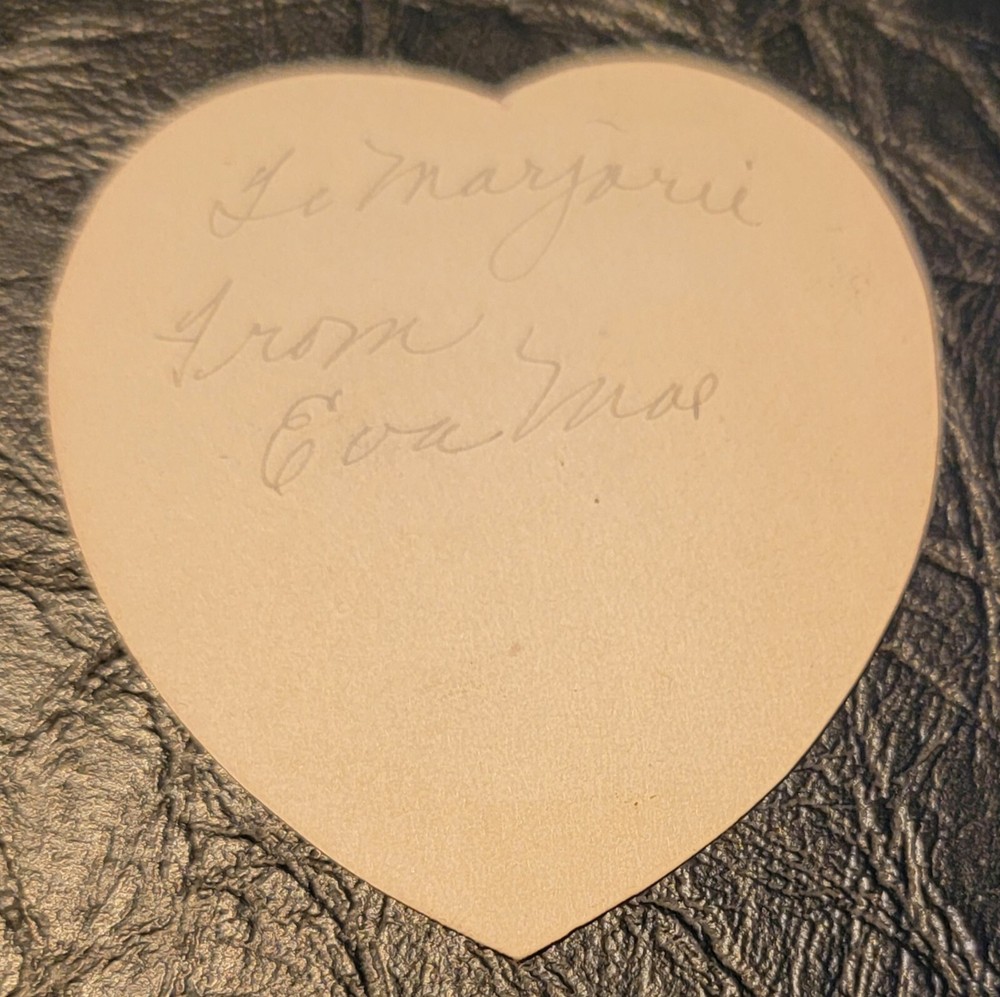 To Marjorie
From
Eva Mae